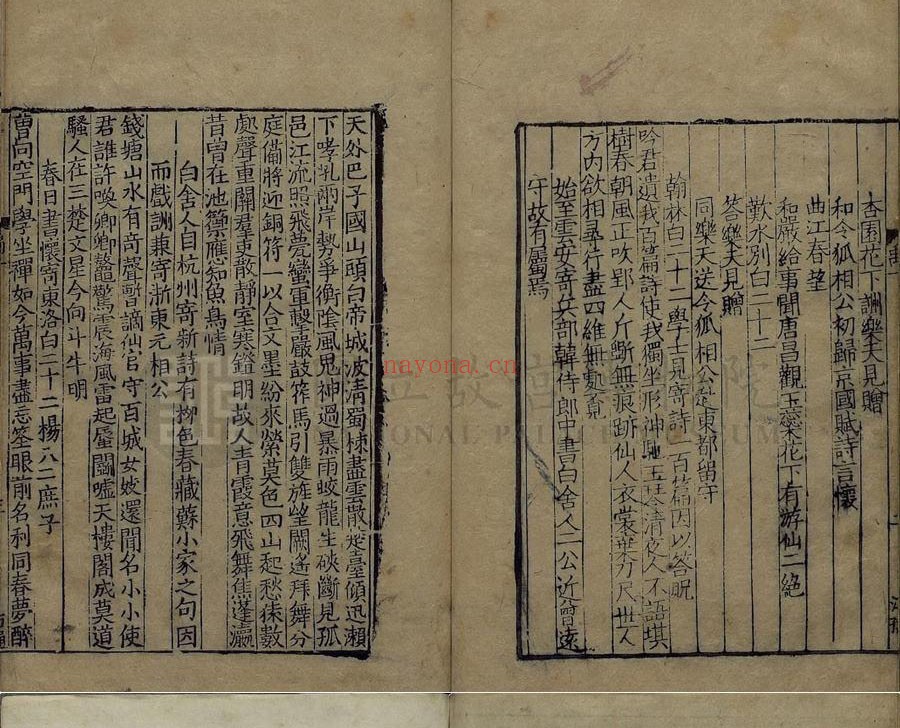 杏園花下酬樂天見贈
和令狐相公初歸京國賦詩言懷
曲江春望
和嚴給事聞唐昌觀玉蘂花下有游仙二絶
歎水別白二十二
答樂天見贈
同樂天送令狐相公赴東都留守
翰林白二十二學士見寄詩一百篇因以答貺
吟君遺我百篇詩使我獨坐形神馳玉琴清夜人不語琪
樹春朝風正吹郢人斤斲無痕跡仙人衣裳棄刀尺世人
方內欲相尋行盡四維無處覓
始至雲安寄兵部韓侍郎中書白舍人二公近曾遠
守故有屬焉
天外巴子國山頭白帝城波清蜀棟盡雲散楚臺傾迅瀨
下哮吼兩岸勢爭衡陰風鬼神過暴雨蛟龍生硤斷見孤
邑江流照飛甍蠻軍擊嚴鼓筰馬引雙旌望闕遙拜舞分
庭備將迎銅符一以合文墨紛來縈莫色四山起愁猨數
處聲重關羣吏散靜室寒鐙明故人青霞意飛舞集蓬瀛
昔曾在池籞應知魚鳥情
白舍人自杭州寄新詩有柳色春藏蘇小家之句因
而戲酬兼寄浙東元相公
錢塘山水有奇聲暫謫仙官守百城女妓還聞名小小使
君誰許喚卿卿鼇驚震海風雷起蜃鬭噓天樓閣成莫道
騷人在三楚文星今向斗牛明
春日書懷寄東洛白二十二楊八二庶子
曾向空門學坐禪如今萬事盡忘筌眼前名利同春夢醉
nayona.cn
NATIONAL PALACE MUSEUM